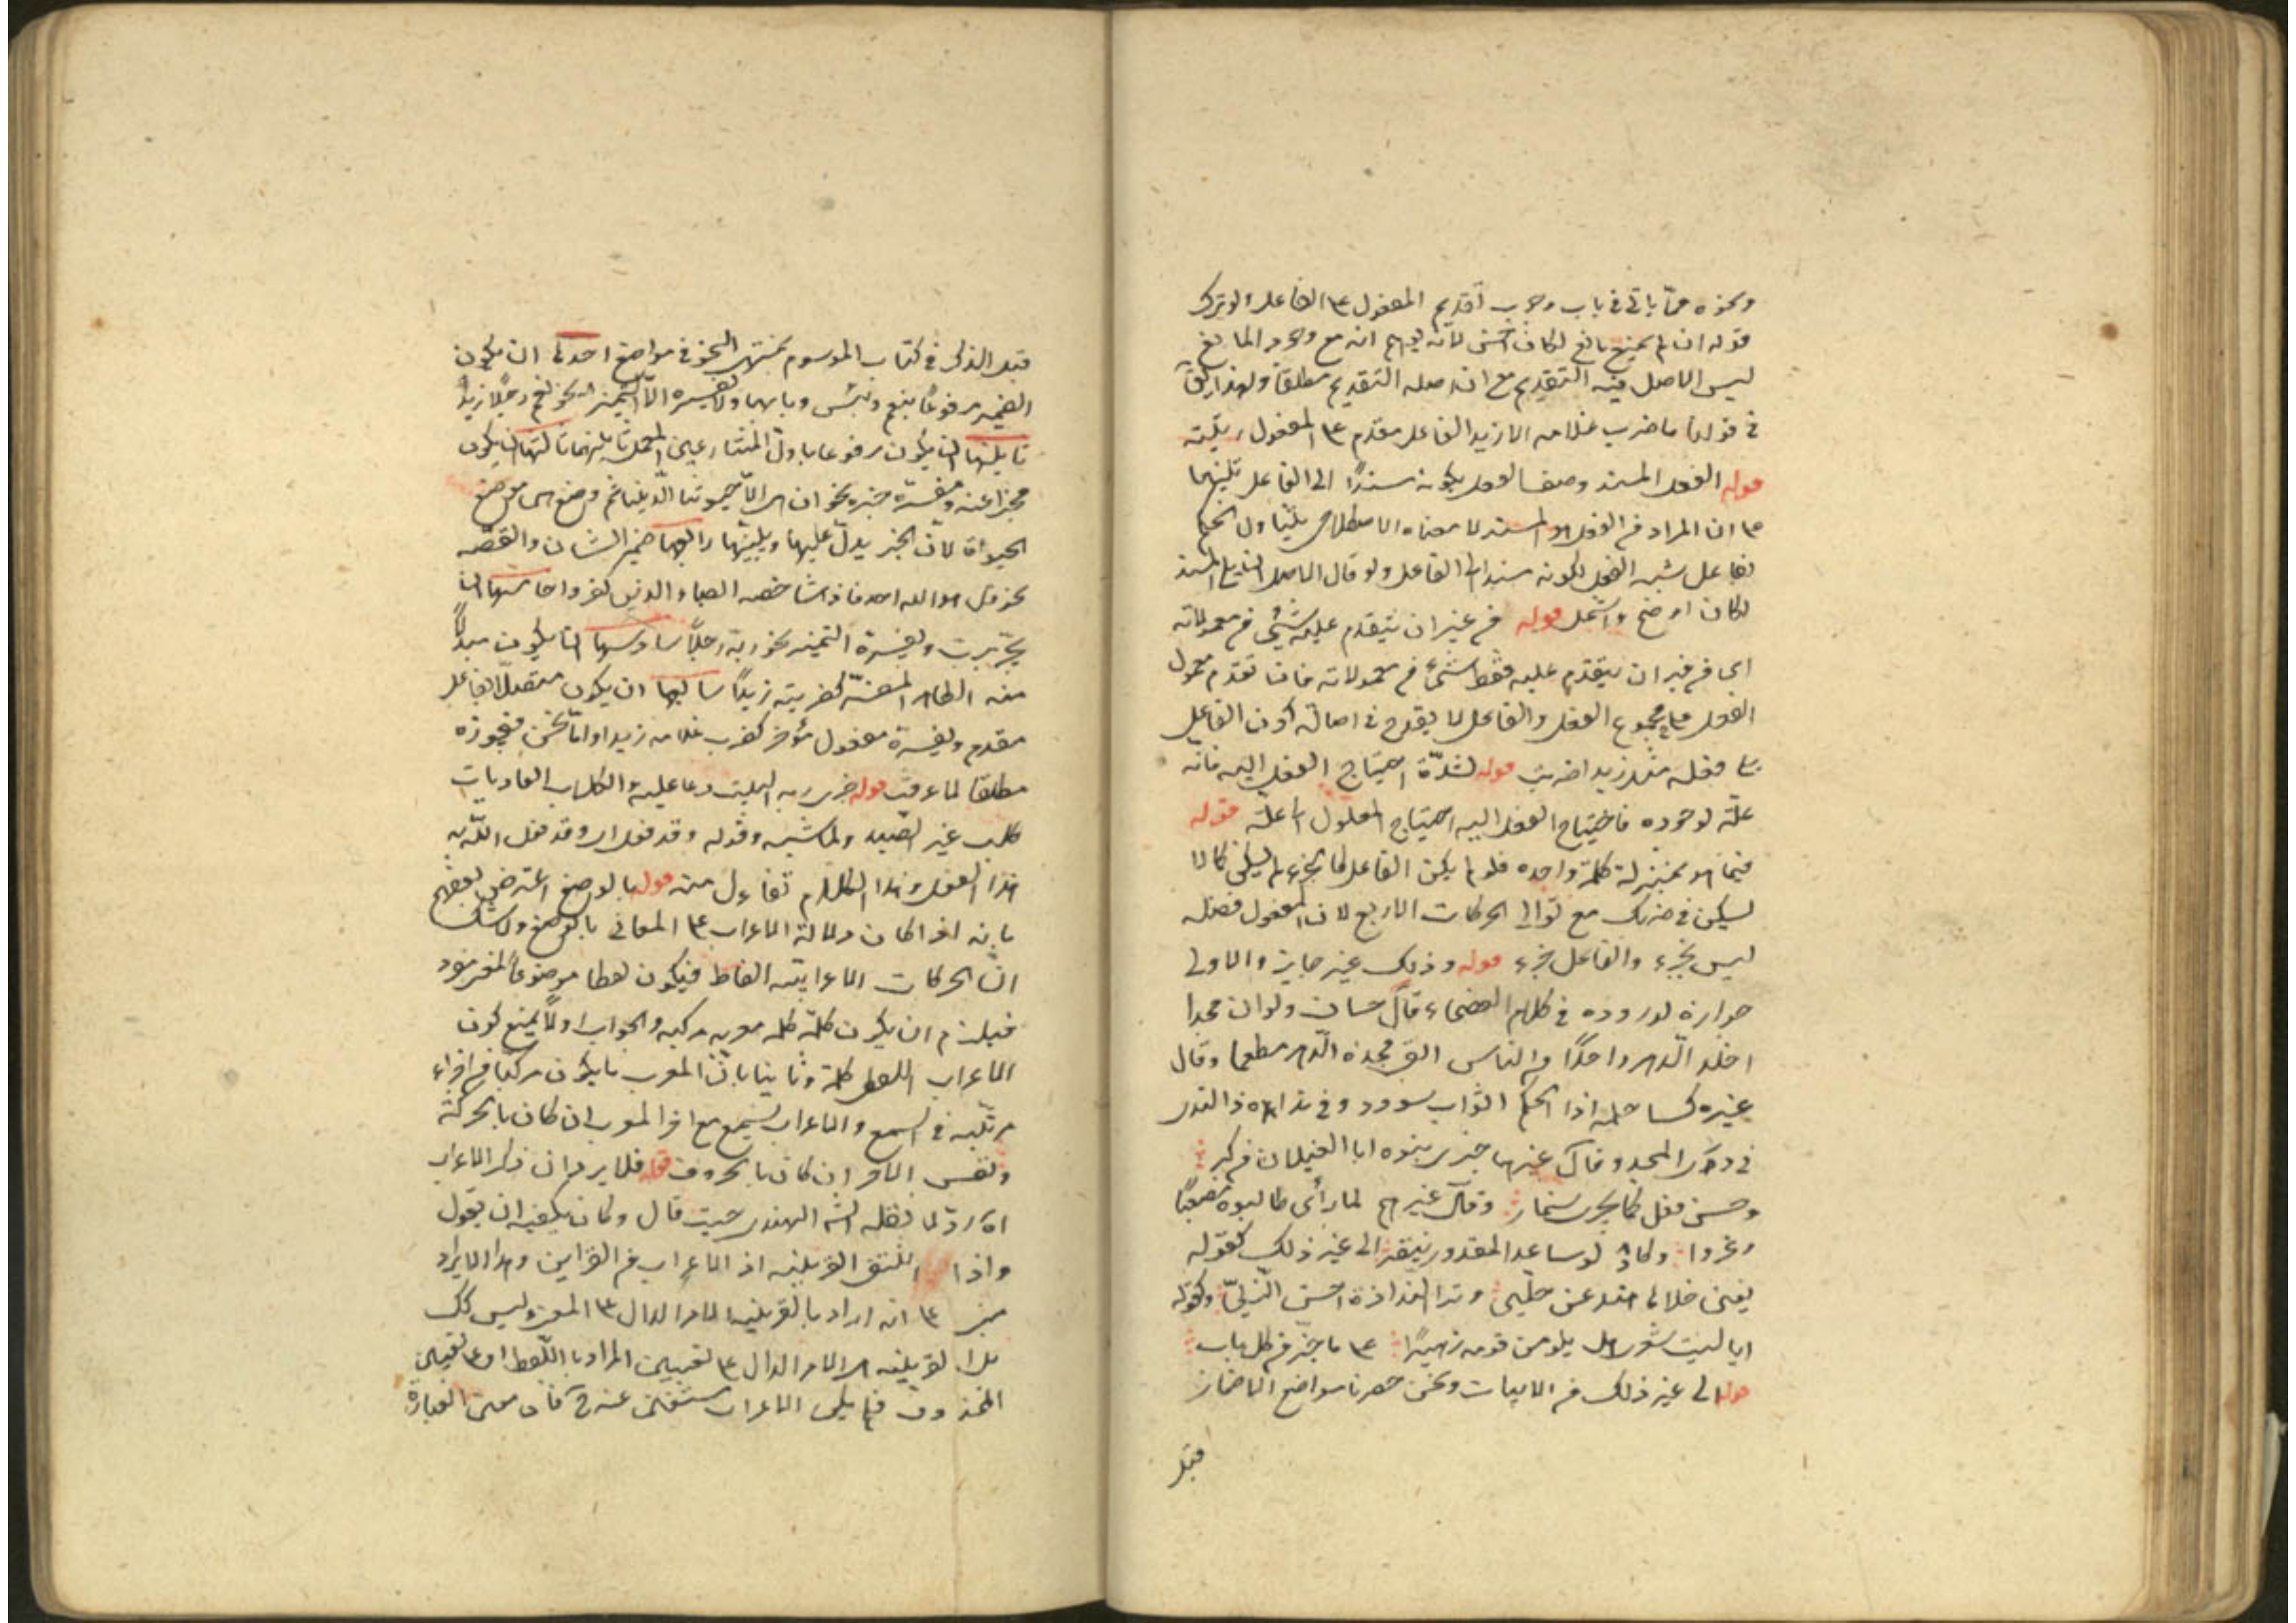 ونحوه مما يأتي في باب وجوب تقديم المفعول ع الفاعل الوترك
قوله ان لم يمنع مانع لكان احسن لانه يوهم انه مع وجود المانع
ليس الاصل فيه التقديم مع ان اصله التقديم مطلقا ولهذا
في قولنا ما ضرب غلامه الا زيد الفاعل مقدم ع المفعول رتبته
قوله الفعل المسند وصف الفعل بكونه مسندا الى الفاعل تنبيها
ع ان المراد من الفعل هو المسند لا معناه الاصطلاحي ليتناول الحكم
لفاعل شبه الفعل لكونه مسندا الى الفاعل ولو قال الاصل ان يلي المسند
لكان اوضح واشمل قوله من غير ان يتقدم عليه شئ من معمولاته
اي من غير ان يتقدم عليه فقط شئ من معمولاته فان تقدم معمول
الفعل على مجموع الفعل والفاعل لا يقدح في اصالة كون الفاعل
يلي فعله مثل زيدا ضربت قوله لشدة احتياج الفعل اليه فانه
علة لوجوده فاحتياج الفعل اليه احتياج المعلول الى علة قوله
فيما هو بمنزلة كلمة واحدة فلو لم يكن الفاعل كالجزء لم يسكن كما لا
يسكن في ضربك مع توالي الحركات الاربع لان المفعول فضلة
ليس بجزء والفاعل جزء قوله وذلك غير جايز والاولى
جوازه لوروده في كلام الفصحاء قال حسان ولو ان مجدا
اخلد الدهر واحدا من الناس ابقى مجده الدهر مطعما وقال
غيره كسا حلمه ذا الحلم اثواب سودد ورقى نداه ذا الندى
في ذرى المجد وقال غيرهما جزى بنوه ابا الغيلان عن كبر
وحسن فعل كما يجزى سنمار وقال غيرهم لما رأى طالبوه مصعبا
ذعروا وكاد لو ساعد المقدور ينتصر الى غير ذلك كقوله
وكقوله
ايا ليت شعري هل يلومن قومه زهيرا ع ما جر من كل باب
قوله الى غير ذلك من الابيات ونحن حصرنا مواضع الاضمار
قبل
قبل الذكر في كتاب الموسوم بمنتهى النحو في مواضع احدها ان يكون
الضمير مرفوعا بنعم وبئس وبابهما ولا يفسره الا التمييز نحو نعم رجلا زيد
ثانيتها ان يكون مرفوعا باول المتنازعين المعمل ثانيهما ثالثها ان يكون
مخبرا عنه ومفسره خبره نحو ان هي الا حيوتنا الدنيا ثم وضع هي موضع
الحيوة لان الخبر يدل عليها ويبينها رابعها ضمير الشان والقصة
نحو قل هو الله احد فاذا هي شاخصة ابصار الذين كفروا خامسها ان
يجر برب ويفسره التمييز نحو ربه رجلا سادسها ان يكون مبدلا
منه الظاهر المفسر كضربته زيدا سابعها ان يكون متصلا بفاعل
مقدم ويفسره مفعول مؤخر كضرب غلامه زيدا واما نحن فنجوزه
مطلقا لما عرفت قوله جزى ربه البيت دعا عليه والكلاب العاويات
كلب غير الصيد والماشية وقوله وقد فعل اي وقد فعل الله به
هذا الفعل وهذا الكلام تفاءل منه قوله بالوضع اعترض بعضهم
بانه اذا كان دلالة الاعراب ع المعاني بالوضع ولا شك
ان الحركات الاعرابية الفاظ فيكون لفظا موضوعا لمعنى مفرد
فيلزم ان يكون كلمة كل معربه مركبه والجواب اولا يمنع كون
الاعراب اللفظي كلمة وثانيا بان المعرب ما يكون مركبا من اجزاء
مرتبة في السمع والاعراب يسمع مع اخر المعرب ان كان بالحركة
ونفس الاخر ان كان بالحروف قوله فلا يرد ان ذكر الاعراب
اه رد لما نقله الشيخ الهندي حيث قال وكان يكفيه ان يقول
واذا انتفى القرينة اذ الاعراب من القراين وهذا الايراد
مبني ع انه اراد بالقرينة الامر الدال ع المعنى وليس كك
بل القرينة هي الامر الدال ع تعيين المراد باللفظ او ع تعيين
المحذوف فلم يكن الاعراب مستغنى عنه فان معنى العبارة